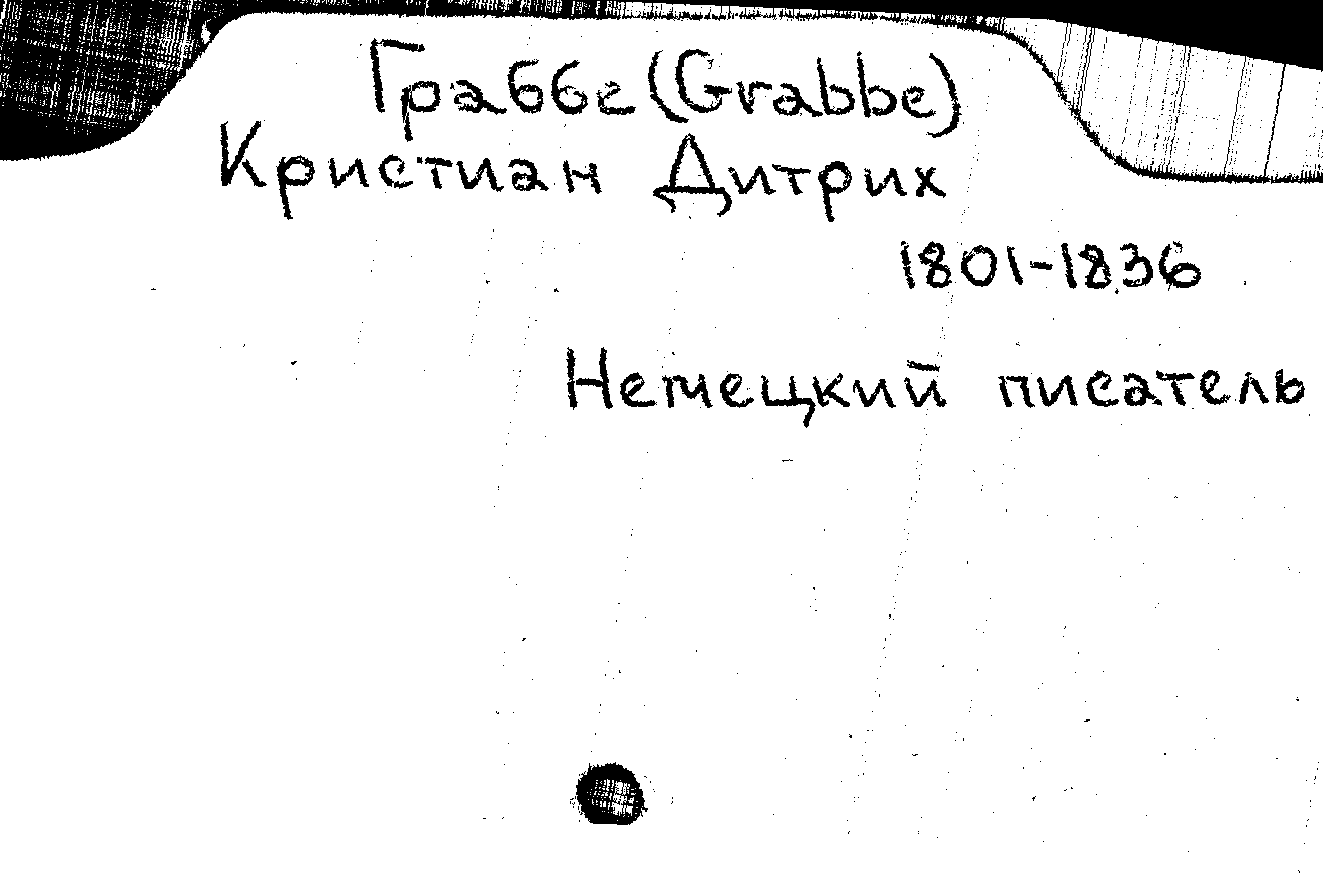 Граббе (Grabbe)
Кристиан Дитрих
1801-1836
Немецкий писатель